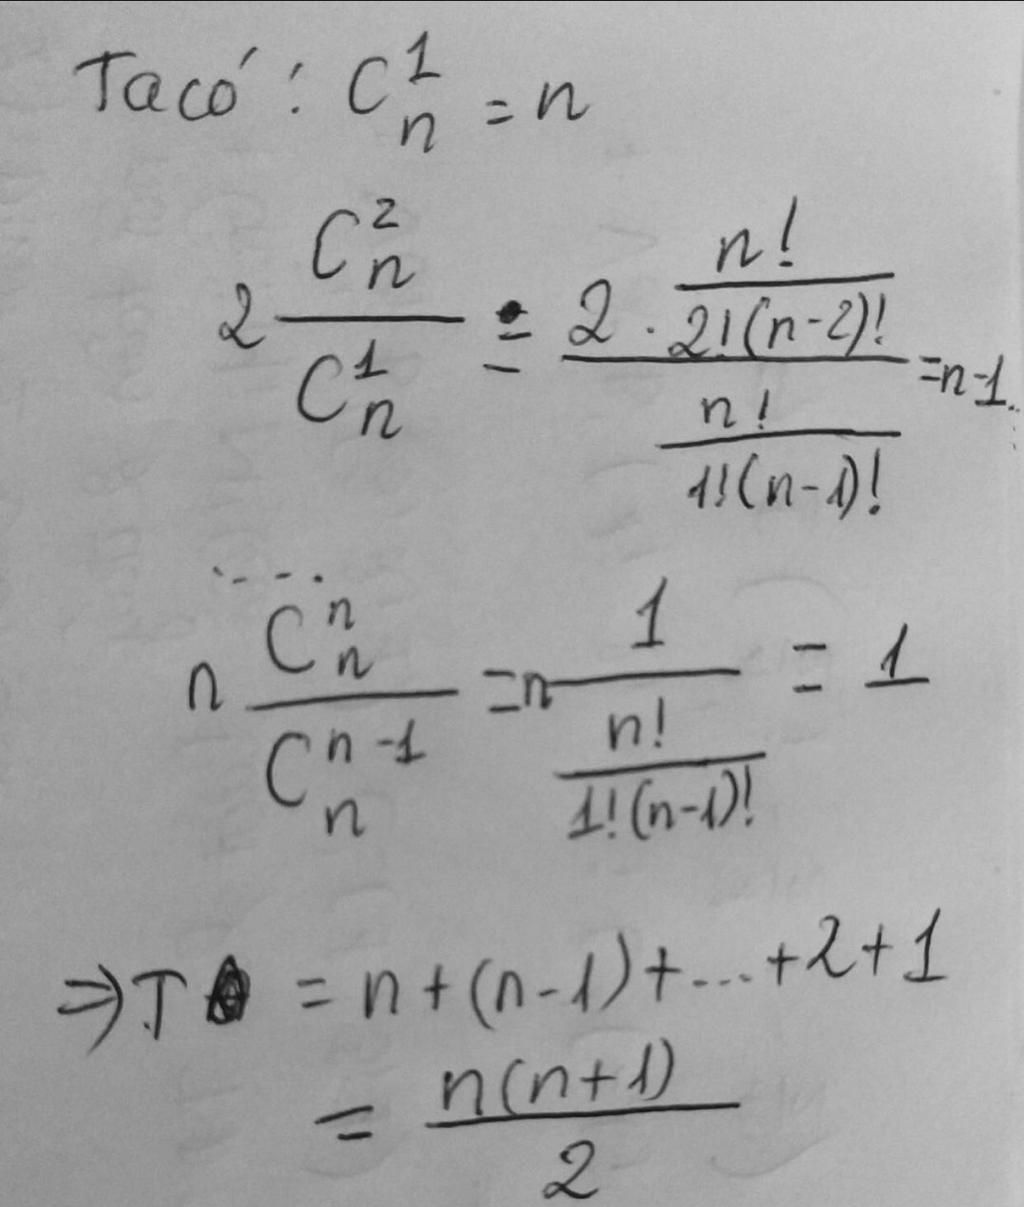 Ta có: C_n^1 = n
2 \frac{C_n^2}{C_n^1} = \frac{2 \cdot \frac{n!}{2!(n-2)!}}{\frac{n!}{1!(n-1)!}} = n-1
.....
n \frac{C_n^n}{C_n^{n-1}} = n \frac{1}{\frac{n!}{1!(n-1)!}} = 1
⇒ T = n + (n-1) + ... + 2 + 1
= \frac{n(n+1)}{2}